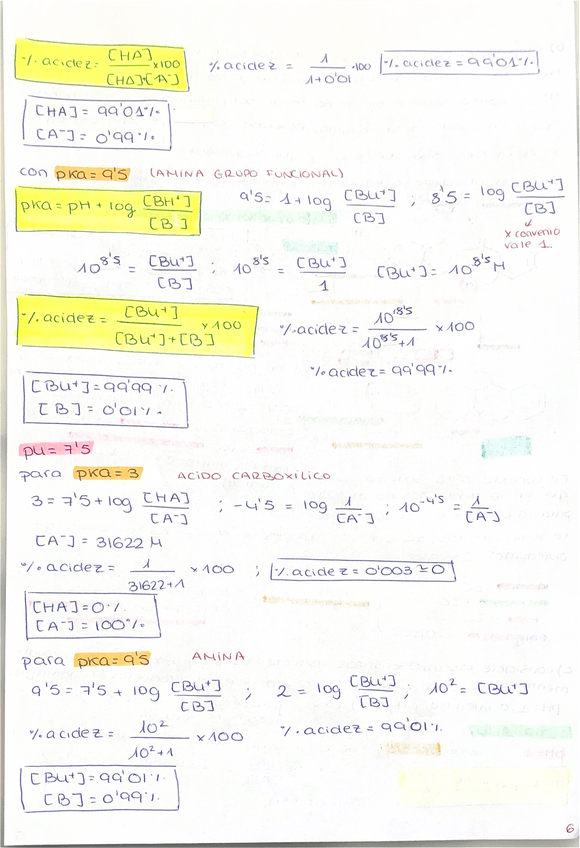 % acidez = [HA]/[HA]+[A⁻] ×100   % acidez = 1/1+0'01 ·100   % acidez = 99'01%
[HA] = 99'01%
[A⁻] = 0'99%
con pKa = 9'5 (AMINA GRUPO FUNCIONAL)
pKa = pH + log [BH⁺]/[B]   9'5 = 1 + log [BH⁺]/[B] ; 8'5 = log [BH⁺]/[B]
x convenio
vale 1.
10^8'5 = [BH⁺]/[B] ; 10^8'5 = [BH⁺]/1   [BH⁺] = 10^8'5 M
% acidez = [BH⁺]/[BH⁺]+[B] ×100   % acidez = 10^8'5/10^8'5+1 ×100
% acidez = 99'99%
[BH⁺] = 99'99%
[B] = 0'01%
pH = 7'5
para pKa = 3 ACIDO CARBOXÍLICO
3 = 7'5 + log [HA]/[A⁻] ; -4'5 = log 1/[A⁻] ; 10^-4'5 = 1/[A⁻]
[A⁻] = 31622 M
% acidez = 1/31622+1 ×100 ; % acidez = 0'003 ≅ 0
[HA] = 0%
[A⁻] = 100%
para pKa = 9'5 AMINA
9'5 = 7'5 + log [BH⁺]/[B] ; 2 = log [BH⁺]/[B] ; 10² = [BH⁺]
% acidez = 10²/10²+1 ×100   % acidez = 99'01%
[BH⁺] = 99'01%
[B] = 0'99%
6